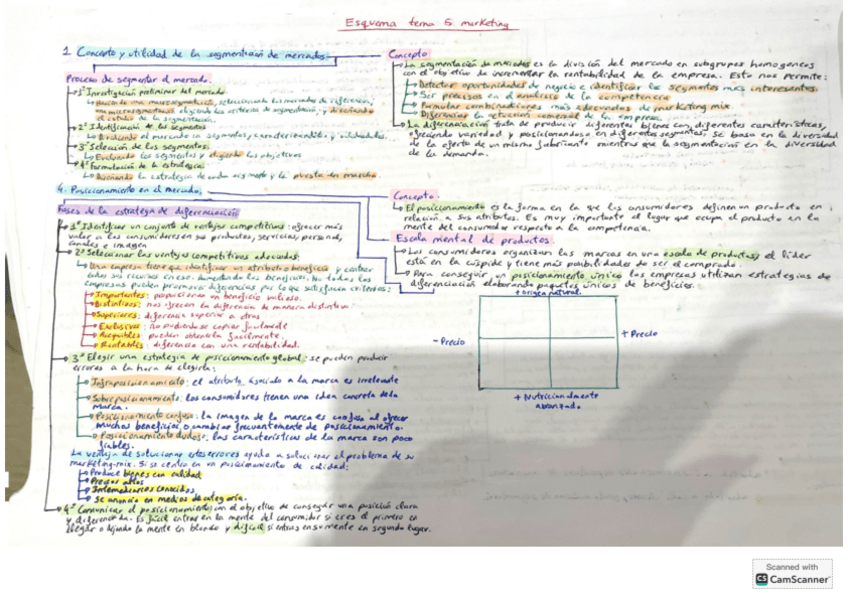 Esquema tema 5 marketing
1. Concepto y utilidad de la segmentación de mercados:
Proceso de segmentar el mercado.
1º Investigación preliminar del mercado
2º Identificación de los segmentos
Dividiendo el mercado en segmentos, caracterizandolos y
3º Selección de los segmentos.
Evaluando los segmentos y eligiendo los objetivos
4º Formulación de la estrategia
la estrategia de cada segmento y la puesta en marcha
Concepto:
La segmentación de mercados es la división del mercado en subgrupos homogeneos
con el objetivo de incrementar la rentabilidad de la empresa. Esto nos permite:
Detectar oportunidades de negocio e identificar los segmentos más interesantes.
Ser precisos en el analisis de la competencia
Formular combinaciones más adecuadas de marketing mix.
Diferenciar la actuación comercial de la empresa.
La diferenciación trata de producir diferentes bienes con diferentes características,
ofreciendo variedad y posicionandose en diferentes segmentos, se basa en la diversidad
de la oferta de un mismo fabricante mientras que la segmentación en la diversidad
de la demanda.
4. Posicionamiento en el mercado
Fases de la estrategia de diferenciación
1º Identificar un conjunto de ventajas competitivas: ofrecer más
valor a los consumidores en sus productos, servicios, personal,
canales e imagen
2º Seleccionar las ventajas competitivas adecuadas:
Una empresa tiene que identificar un atributo o beneficio y
empresas pueden promover diferencias por lo que satisfacen criterios:
Importantes: proporcionan un beneficio valioso.
Distintivas: nos ofrecen la diferencia de manera distintiva
Superiores: diferencia superior a otras
Exclusivas: no pudiendose copiar facilmente
Asequibles: pueden obtenerla facilmente.
Rentables: diferencia con una rentabilidad.
3º Elegir una estrategia de posicionamiento global: se pueden producir
errores a la hora de elegirla:
Infraposicionamiento: el atributo asociado a la marca es irrelevante
Sobreposicionamiento: los consumidores tienen una idea concreta de la
marca.
Posicionamiento confuso: la imagen de la marca es confusa al ofrecer
muchos beneficios o cambiar frecuentemente de posicionamiento.
Posicionamiento dudoso: las características de la marca son poco
fiables.
La ventaja de solucionar estos errores ayuda a solucionar el problema de su
marketing-mix. Si se centra en un posicionamiento de calidad:
Produce bienes con calidad
Precios altos
Intermediarios conocidos
Se anuncia en medios de categoria.
4º Comunicar el posicionamiento con el objetivo de conseguir una posición clara
y diferenciada. Es facil entrar en la mente del consumidor si eres el primero en
llegar o dejando la mente en blanco y dificil si entras en su mente en segundo lugar.
Concepto:
El posicionamiento es la forma en la que los consumidores definen un producto en
relación a sus atributos. Es muy importante el lugar que ocupa el producto en la
mente del consumidor respecto a la competencia.
Escala mental de productos.
Los consumidores organizan las marcas en una escala de productos, el lider
está en la cúspide y tiene más posibilidades de ser el comprado.
Para conseguir un posicionamiento único las empresas utilizan estrategias de
diferenciación elaborando paquetes únicos de beneficios.
+ origen natural
- Precio
+ Precio
+ Nutricionalmente
avanzado.
Scanned with
CS CamScanner